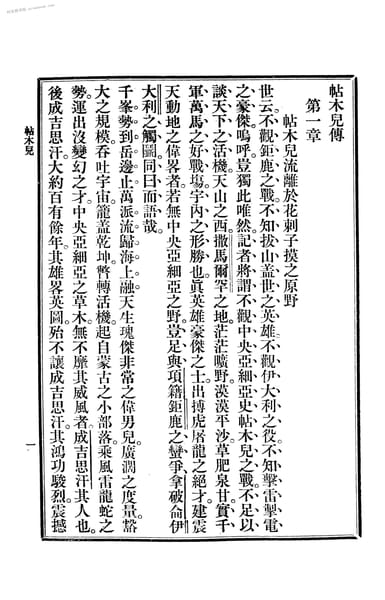 帖木兒傳
第一章
帖木兒流離於花刺子摸之原野
世云不觀鉅鹿之戰、不知拔山盖世之英雄、不觀伊大利之役、不知擊雷掣電
之豪傑、嗚呼豈獨此唯然、記者將謂不觀中央亞細亞史帖木兒之戰、不足以
談天下之活機、天山之西、撒馬爾罕之地、茫茫曠野、漠漠平沙、草肥泉甘、實千
軍萬馬之好戰塲、宇內之形勝也、眞英雄豪傑之士、出搏虎屠龍之絕才、建震
天動地之偉畧者、若無中央亞細亞之野、豈足與項籍鉅鹿之壘、爭拿破侖伊
大利之觸圖、同日而語哉。
千峯勢到岳邊止、萬派流歸海上融、天生瑰傑非常之偉男兒、廣濶之度量、豁
大之規模、吞吐宇宙、籠盖乾坤、瞥轉活機、起自蒙古之小部落、乘風雷龍蛇之
勢、運出沒變幻之才、中央亞細亞之草木、無不靡其威風者、成吉思汗其人也。
後成吉思汗、大約百有餘年、其雄畧英圖、殆不讓成吉思汗、其鴻功駿烈、震撼
帖木兒
一